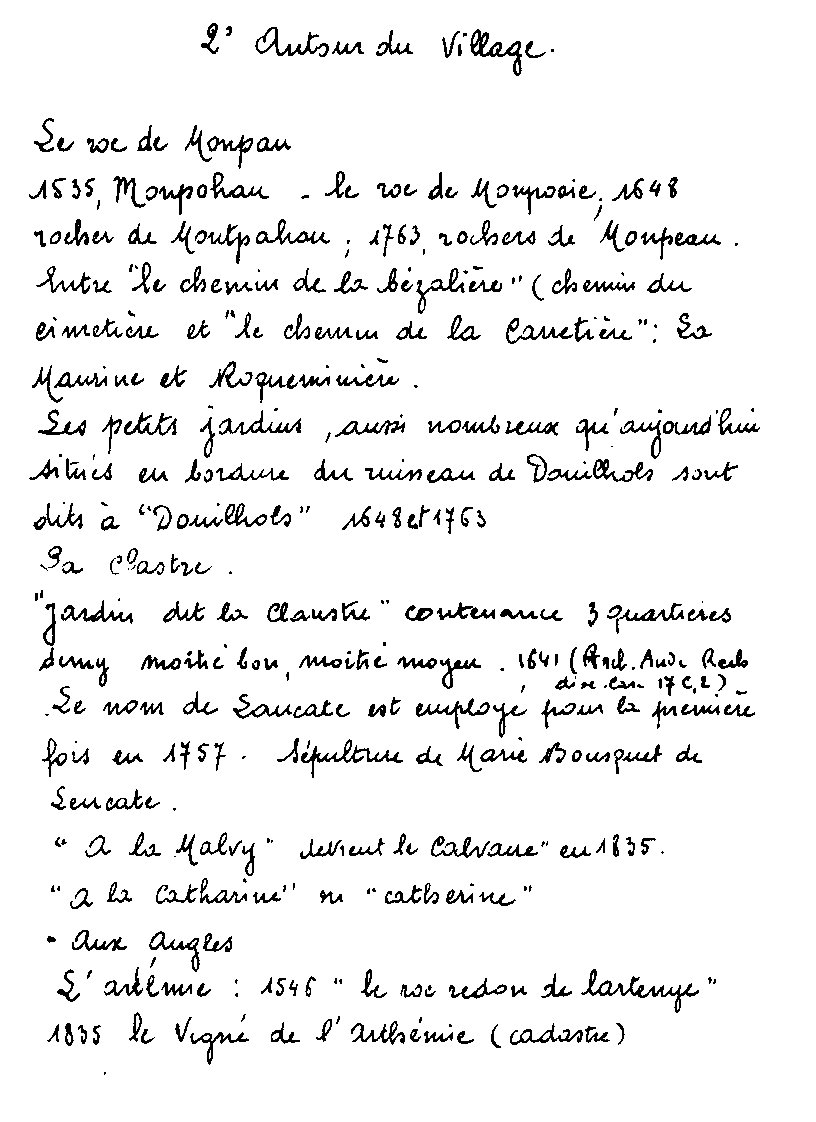 2° Autour du Village.
Le roc de Monpau
1535, Monpohau - le roc de Monposie, 1648
rocher de Montpahou ; 1763, rochers de Monpeau.
Entre "le chemin de la bézalière" (chemin du
cimetière et "le chemin de la Carretière": La
Maurine et Roqueminière.
Les petits jardins, aussi nombreux qu'aujourd'hui
situés en bordure du ruisseau de Douilhols sont
dits à "Douilhols" 1648 et 1763
La Clastre.
"Jardin dit la Claustre" contenance 3 quartières
demy moitié bon, moitié moyen. 1641 (Arch. Aude
17 C, 2)
Le nom de Laucate est employé pour la première
fois en 1757. Sépulture de Marie Bousquet de
Leucate.
"A la Malvy" devient le Calvaire" en 1835.
"A la Catharine" ou "catherine"
- Aux Angles
L'artémie : 1546 "le roc redon de lartemye"
1835 le Vigné de l'Arthémie (cadastre)